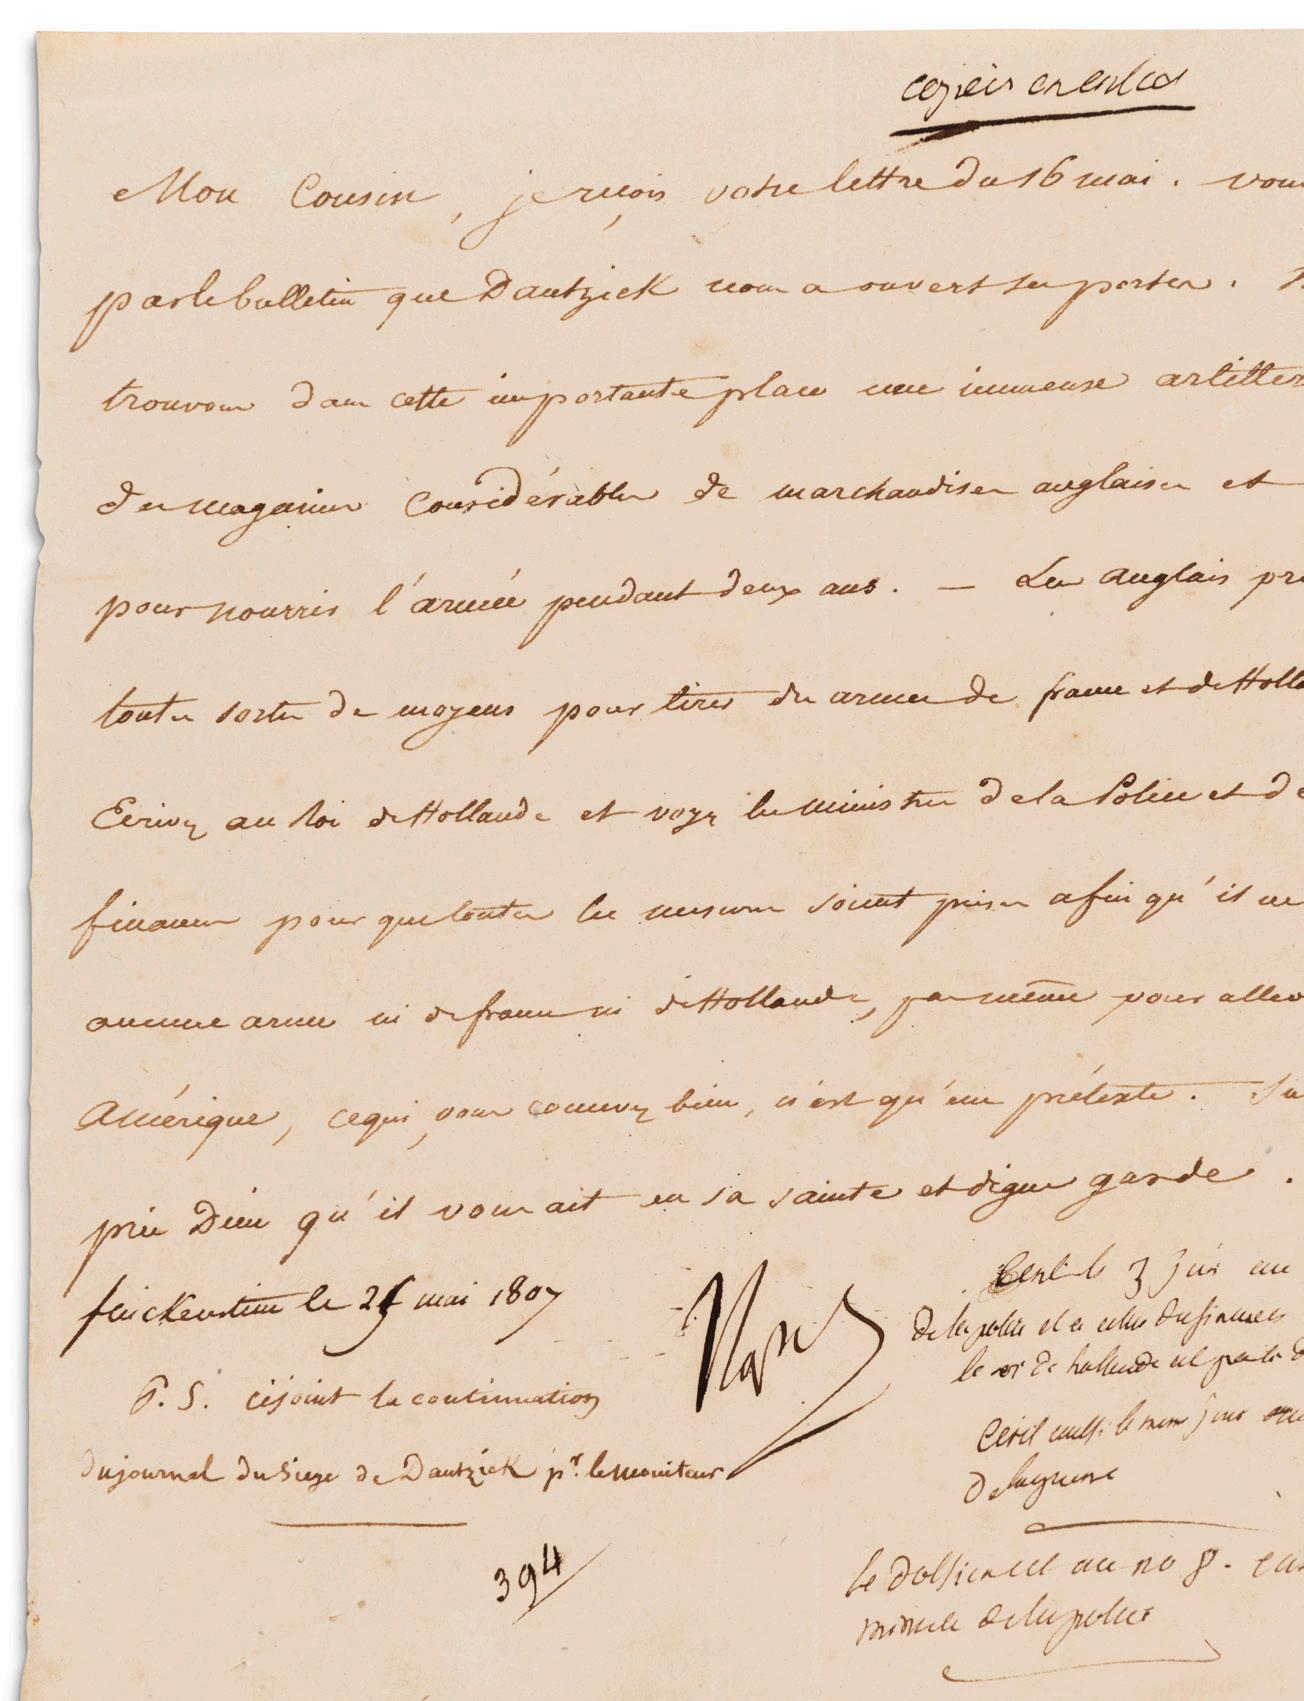 copier en entier
Mon Cousin, je reçois votre lettre du 16 mai. vous
par le bulletin que Dantzick nous a ouvert ses portes.
trouvons dans cette importante place une immense artiller
des magasins considérables de marchandises anglaises et
pour nourrir l'armée pendant deux ans. — Les anglais pre
toutes sortes de moyens pour tirer des armes de france et de Holla
Ecrivez au Roi de Hollande et voyez les ministres de la Police et de
finances pour que toutes les mesures soient prises afin qu'il ne
aucune arme ni de france ni de Hollande, pas même pour aller
Amérique, ce qui, vous concevez bien, n'est qu'un prétexte. Su
prie Dieu qu'il vous ait en sa sainte et digne garde.
finckenstein le 26 mai 1807
Nap
P. S. ci joint la continuation
du journal du Siege de Dantzick pr. le moniteur
394
Ecrit le 3 juin au
de la police et a celui des finances
le roi de hollande est prié d
Ecrit aussi le meme jour au
de la guerre
le dossier est au no 8.
ministre de la police